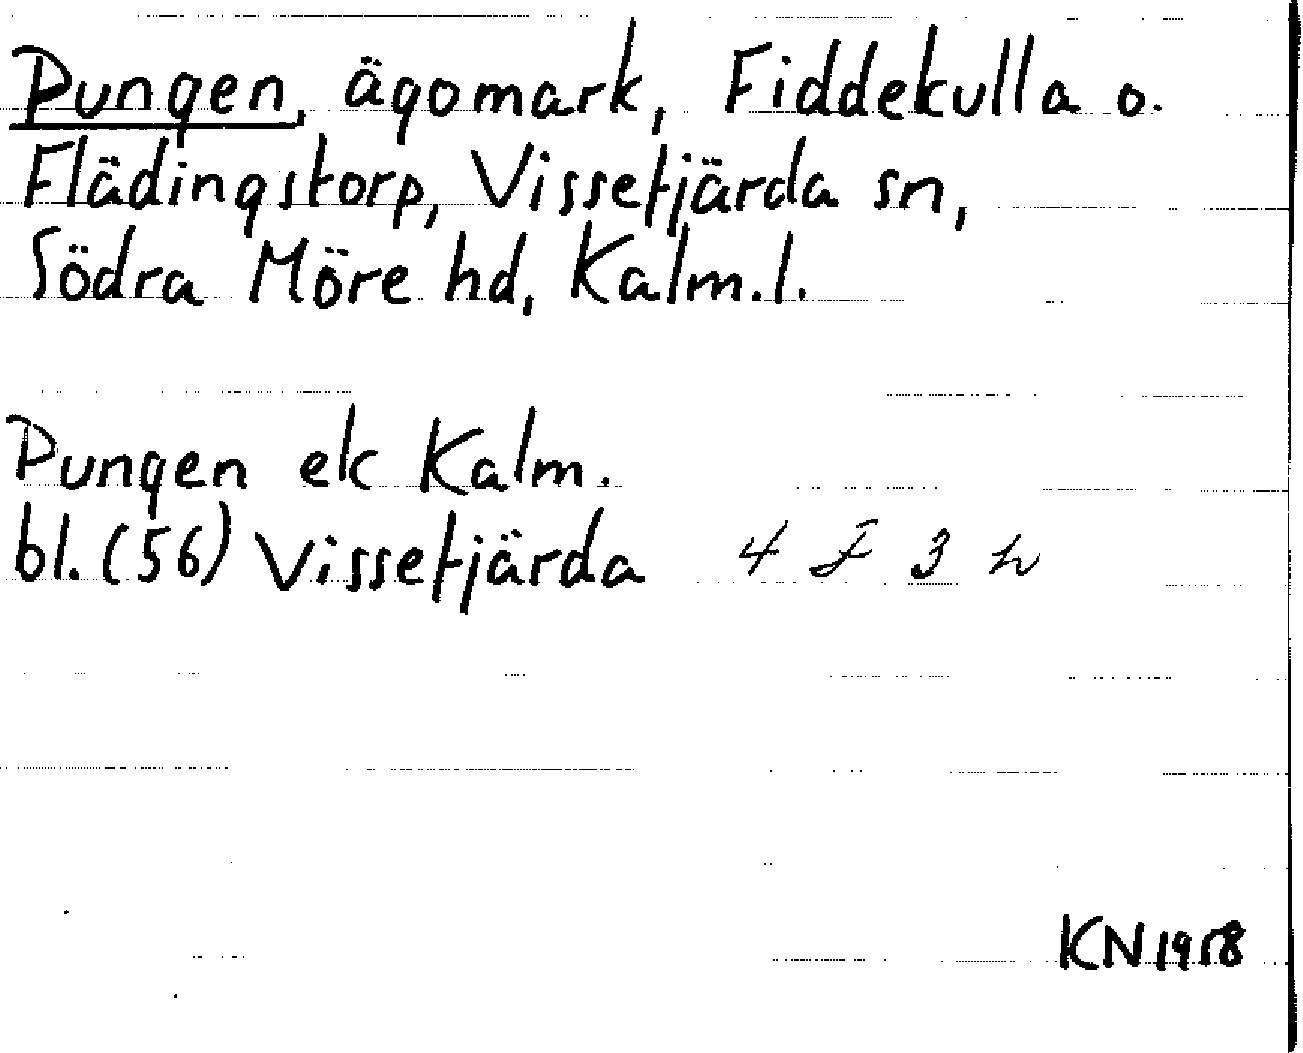 Pungen, ägomark, Fiddekulla o.
Flädingstorp, Vissefjärda sn,
Södra Möre hd, Kalm.l.
Pungen ek Kalm.
bl. (56) Vissefjärda 4 F 3 h
KN 1958